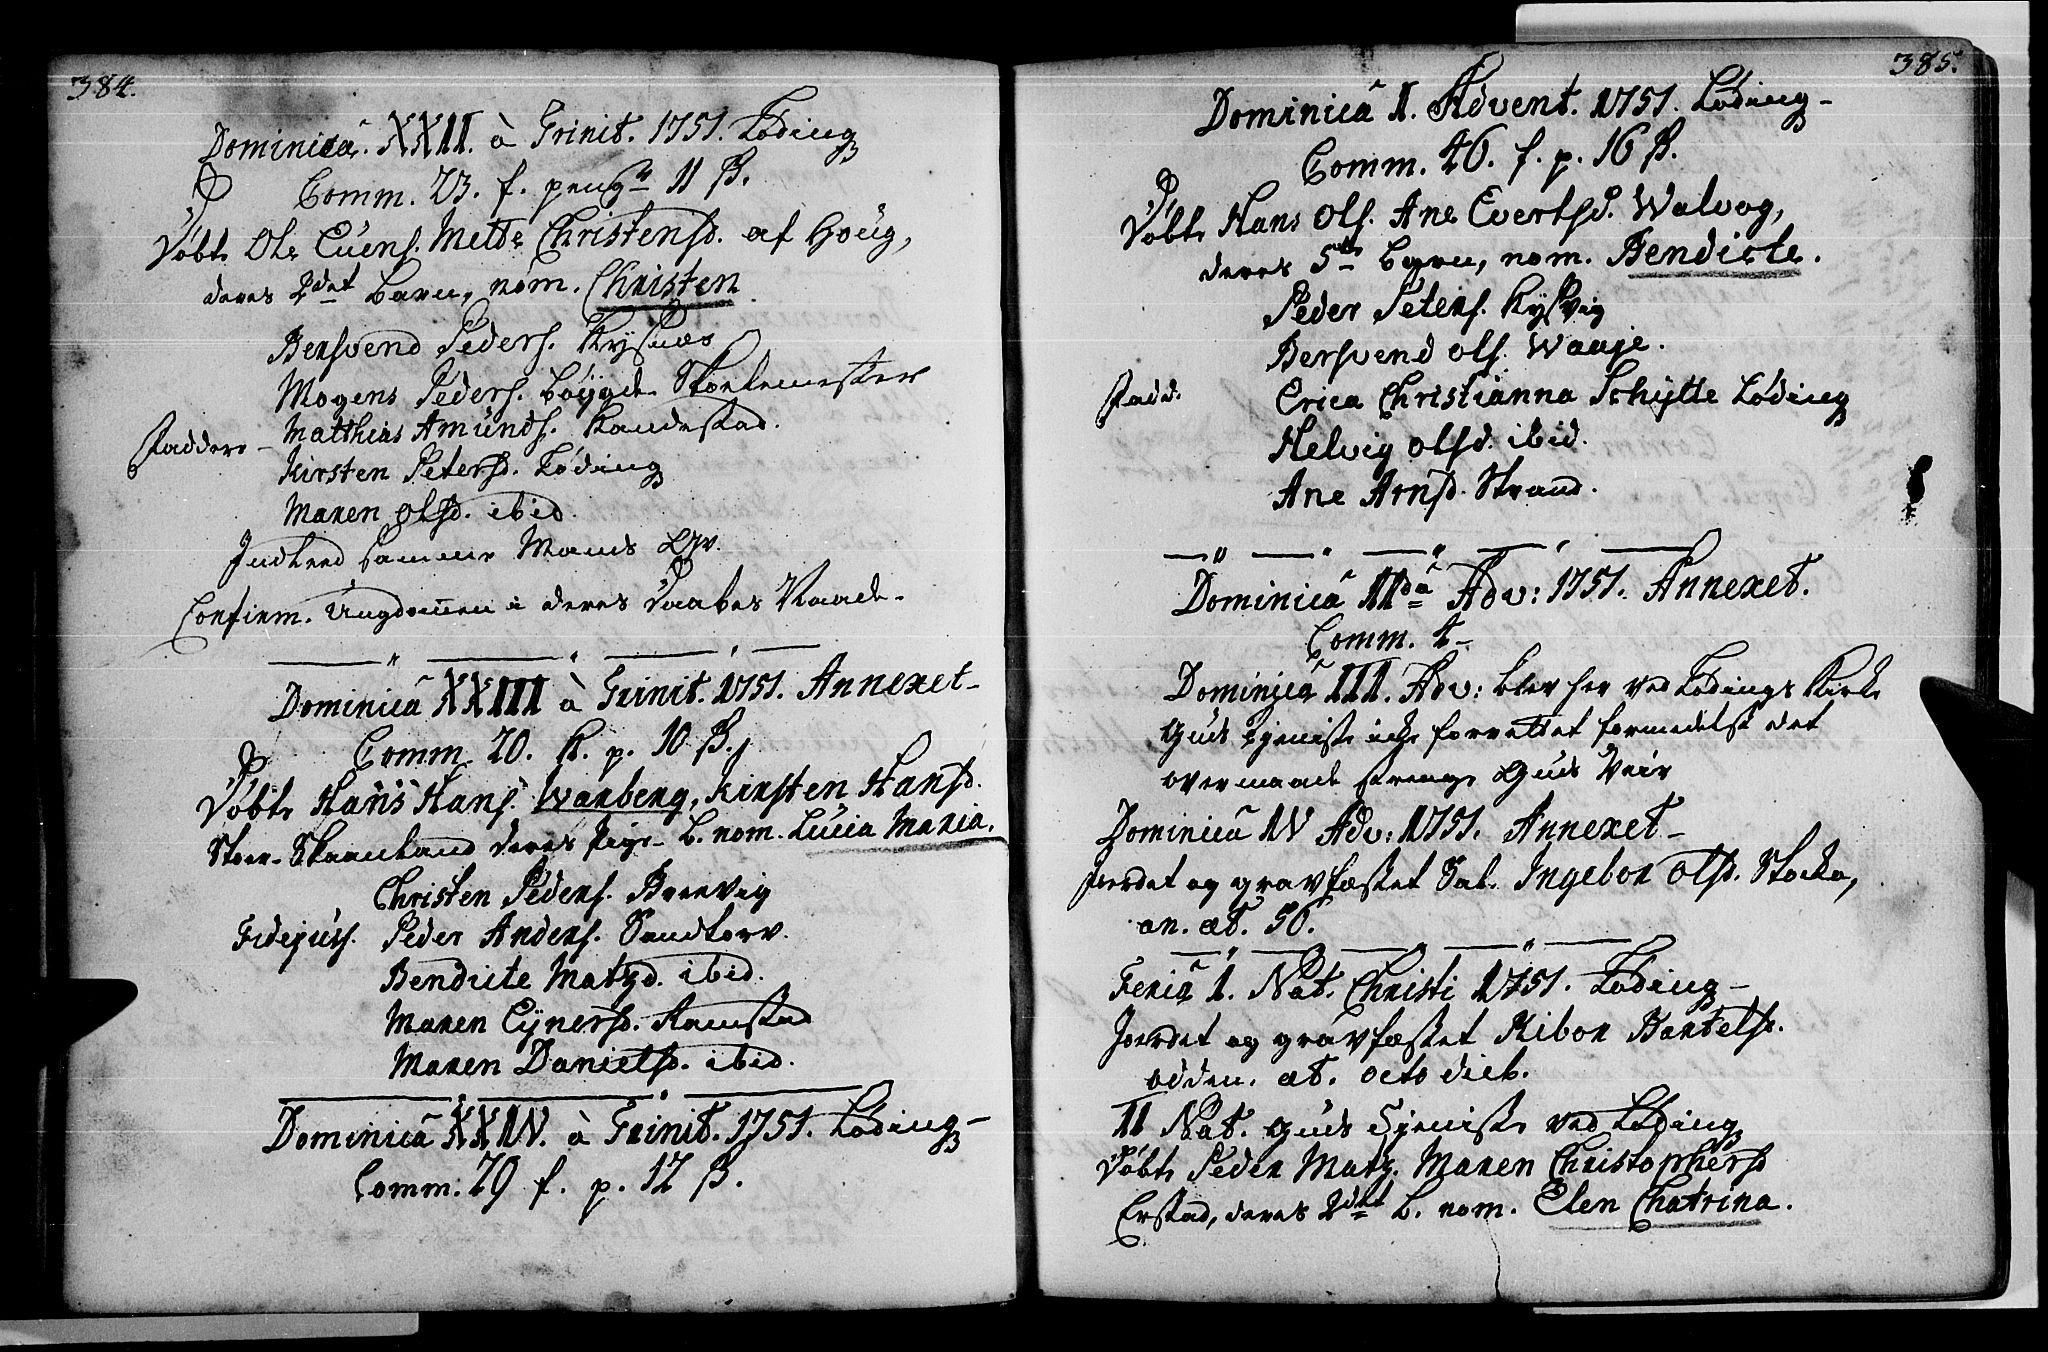 384.
Dominicâ. XXII. à Trinit. 1751. Løding
Comm. 23. f. peng. 11 ß.
Døbt Ole Evens. Mette Christensd. af Houg,
deres 2det barn, nom. Christen
Bersvend Peders. Kysnæs
Mogens Peders. bøygde Skolemester
Matthias Amunds. Kandestad.
Faddere -
Kirsten Petersd. Løding
Maren Olsd. ibid.
Indleed samme Mands Qv.
Confirm. Ungdommen i deres Daabes Naade.
Dominicâ XXIII à Trinit. 1751. Annexet -
Comm. 20. K. p. 10 ß.
Døbt Hans Hans. Warberg, Kirsten Hansd.
Stoer-Skaanland deres Pige-b. nom. Lucia Maria.
Christen Peders. Breevig
Fidejuss. Peder Anders. Sandtorv.
Bendicte Matzd. ibid.
Maren Eynersd. Ramstad
Maren Danielsd. ibid.
Dominicâ XXIV. à Trinit. 1751. Løding -
Comm. 29 f. p. 12 ß.
385.
Dominicâ I. Advent. 1751. Løding -
Comm. 46. f. p. 16 ß.
Døbt Hans Ols. Ane Evertsd. Walvog,
deres 5te barn, nom. Bendicte.
Peder Peters. Kysvig
Bersvend Ols. Waaje.
Fadd. Erica Christianna Schytte Løding
Helvig Olsd. ibid.
Ane Arnsd. Strand.
Dominicâ IIdâ Adv: 1751. Annexet.
Comm. 4 -
Dominicâ III. Adv: blev her ved Lødings Kirke
Guds Tjeniste icke forrettet formedelst det
overmaade strenge Guds Veir
Dominicâ IV Adv: 1751. Annexet -
Jordet og gravfæstet Sal. Ingebor Olsd. Stocke,
an. æt. 56.
Feria 1. Nat. Christi 1751. Løding -
Jordet og gravfæstet Kibor Bartelsd.
Odden. æt. octo dieb.
II Nat. Guds Tjeniste ved Løding
Døbt Peder Matz. Maren Christophersd
Erstad, deres 2det b. nom. Elen Chatrina.